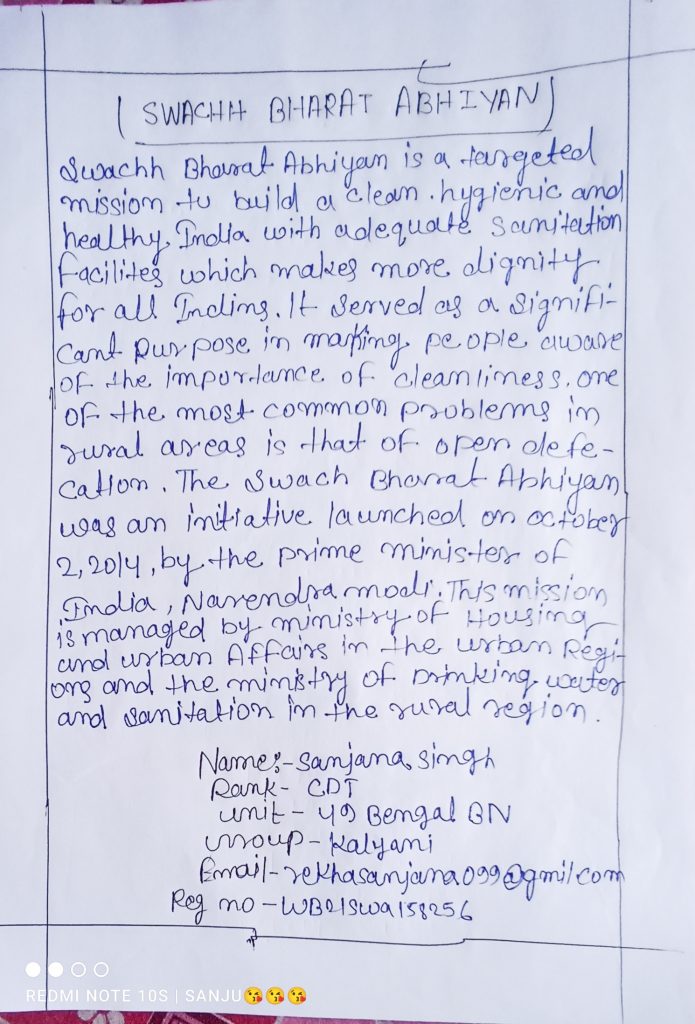 SWACHH BHARAT ABHIYAN
Swachh Bharat Abhiyan is a targeted
mission to build a clean. hygienic and
healthy India with adequate sanitation
facilites which makes more dignity
for all Indins. It served as a signifi-
cant purpose in making people aware
of the importance of cleanliness. one
of the most common problems in
rural areas is that of open defe-
cation. The Swach Bharat Abhiyan
was an initiative launched on october
2, 2014, by the prime minister of
India, Narendra modi. This mission
is managed by ministry of Housing
and urban Affairs in the urban Regi-
ons and the ministry of Drinking water
and sanitation in the rural region.
Name:- Sanjana Singh
Rank - CDT
unit - 49 Bengal BN
Group - Kalyani
Email - rekhasanjana099@gmil.com
Reg no - WB21SWA158256
REDMI NOTE 10S | SANJU😘😘😘